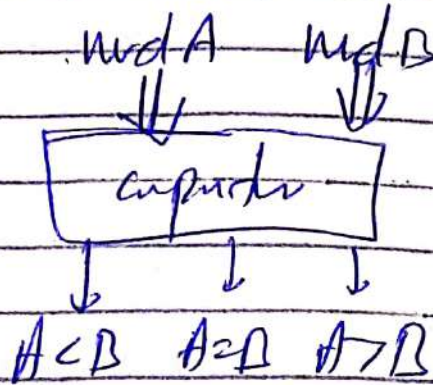 word A word B
comparator
A<B A=B A>B